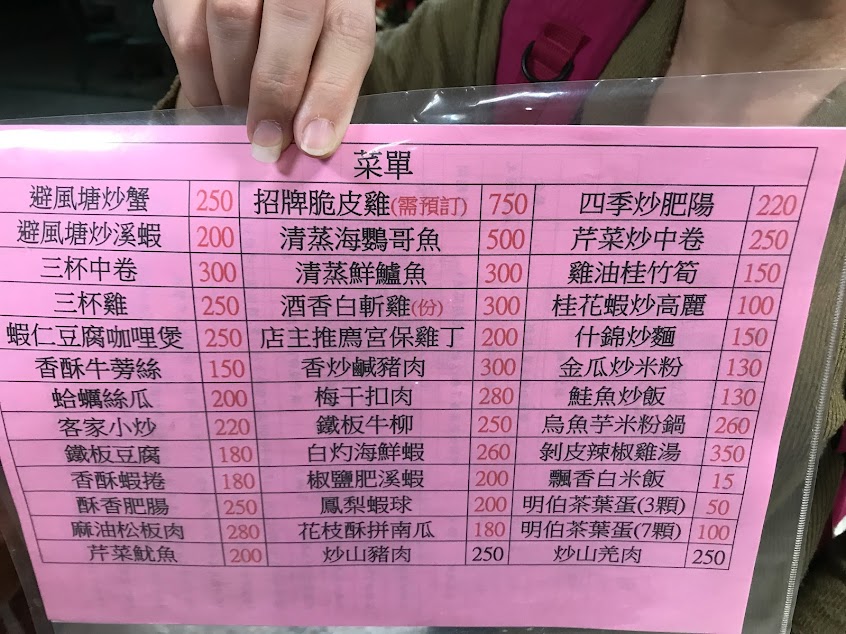 菜單
避風塘炒蟹 250 招牌脆皮雞(需預訂) 750 四季炒肥陽 220
避風塘炒溪蝦 200 清蒸海鸚哥魚 500 芹菜炒中卷 250
三杯中卷 300 清蒸鮮鱸魚 300 雞油桂竹筍 150
三杯雞 250 酒香白斬雞(份) 300 桂花蝦炒高麗 100
蝦仁豆腐咖哩煲 250 店主推薦宮保雞丁 200 什錦炒麵 150
香酥牛蒡絲 150 香炒鹹豬肉 300 金瓜炒米粉 130
蛤蠣絲瓜 200 梅干扣肉 280 鮭魚炒飯 130
客家小炒 220 鐵板牛柳 250 烏魚芋米粉鍋 260
鐵板豆腐 180 白灼海鮮蝦 260 剝皮辣椒雞湯 350
香酥蝦捲 180 椒鹽肥溪蝦 200 飄香白米飯 15
酥香肥腸 250 鳳梨蝦球 200 明伯茶葉蛋(3顆) 50
麻油松板肉 280 花枝酥拼南瓜 180 明伯茶葉蛋(7顆) 100
芹菜魷魚 200 炒山豬肉 250 炒山羌肉 250